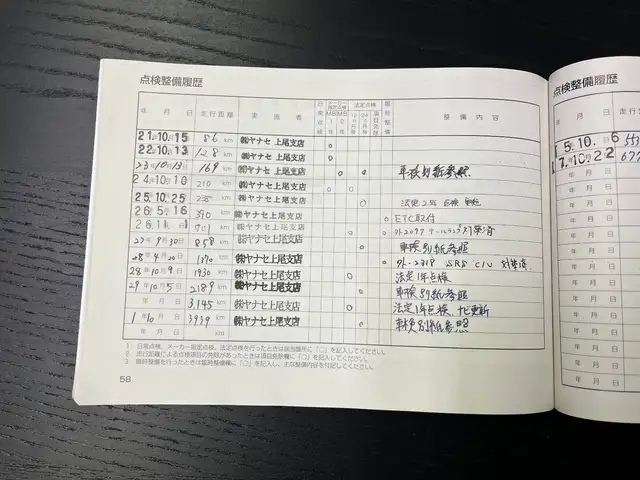 点検整備履歴
年 月 日 走行距離 実施者 日常点検 メーカー指定点検 法定点検 項目免除 臨時整備 整備内容
MB1年 MB2年 12ヵ月毎 24ヵ月毎
21年10月15 86 km ㈱ヤナセ 上尾支店 ○
22年10月13 128 km ㈱ヤナセ 上尾支店 ○
23年10月13日 169 km ㈱ヤナセ 上尾支店 ○ ○ 車検別紙参照
24年10月10 210 km ㈱ヤナセ 上尾支店 ○ ○
25年10月25 ㈱ヤナセ 上尾支店 ○ 法定2年点検
26年5月16 390 ㈱ヤナセ 上尾支店 ○ ETC取付
26年11月 ㈱ヤナセ 上尾支店 ○ テールランプ対策済
27年9月30日 858 ㈱ヤナセ 上尾支店 ○ 車検別紙参照
28年4月20 1370 ㈱ヤナセ上尾支店 ○ 外-2318 SRS C/U 対策済
28年10月9日 1930 ㈱ヤナセ上尾支店 ○ 法定1年点検
29年10月5日 2189 ㈱ヤナセ上尾支店 ○ 車検別紙参照
年 月 日 3,145 ㈱ヤナセ上尾支店 ○ 法定1年点検 ナビ更新
1年10月 日 3939 ㈱ヤナセ上尾支店 ○ 車検別紙参照
年 月 日 km
1 日常点検、メーカー指定点検、法定点検を行ったときは該当箇所に「○」を記入してください。
2 走行距離による点検項目の免除があったときは項目免除欄に「○」を記入してください。
3 臨時整備を行ったときは臨時整備欄に「○」を記入し、主な整備内容を付記してください。
58
点検整備履歴
年 月 日 走行
5年10月 6 553
7年10月22 677
年 月 日
年 月 日
年 月 日
年 月 日
年 月 日
年 月 日
年 月 日
年 月 日
年 月 日
年 月 日
年 月 日